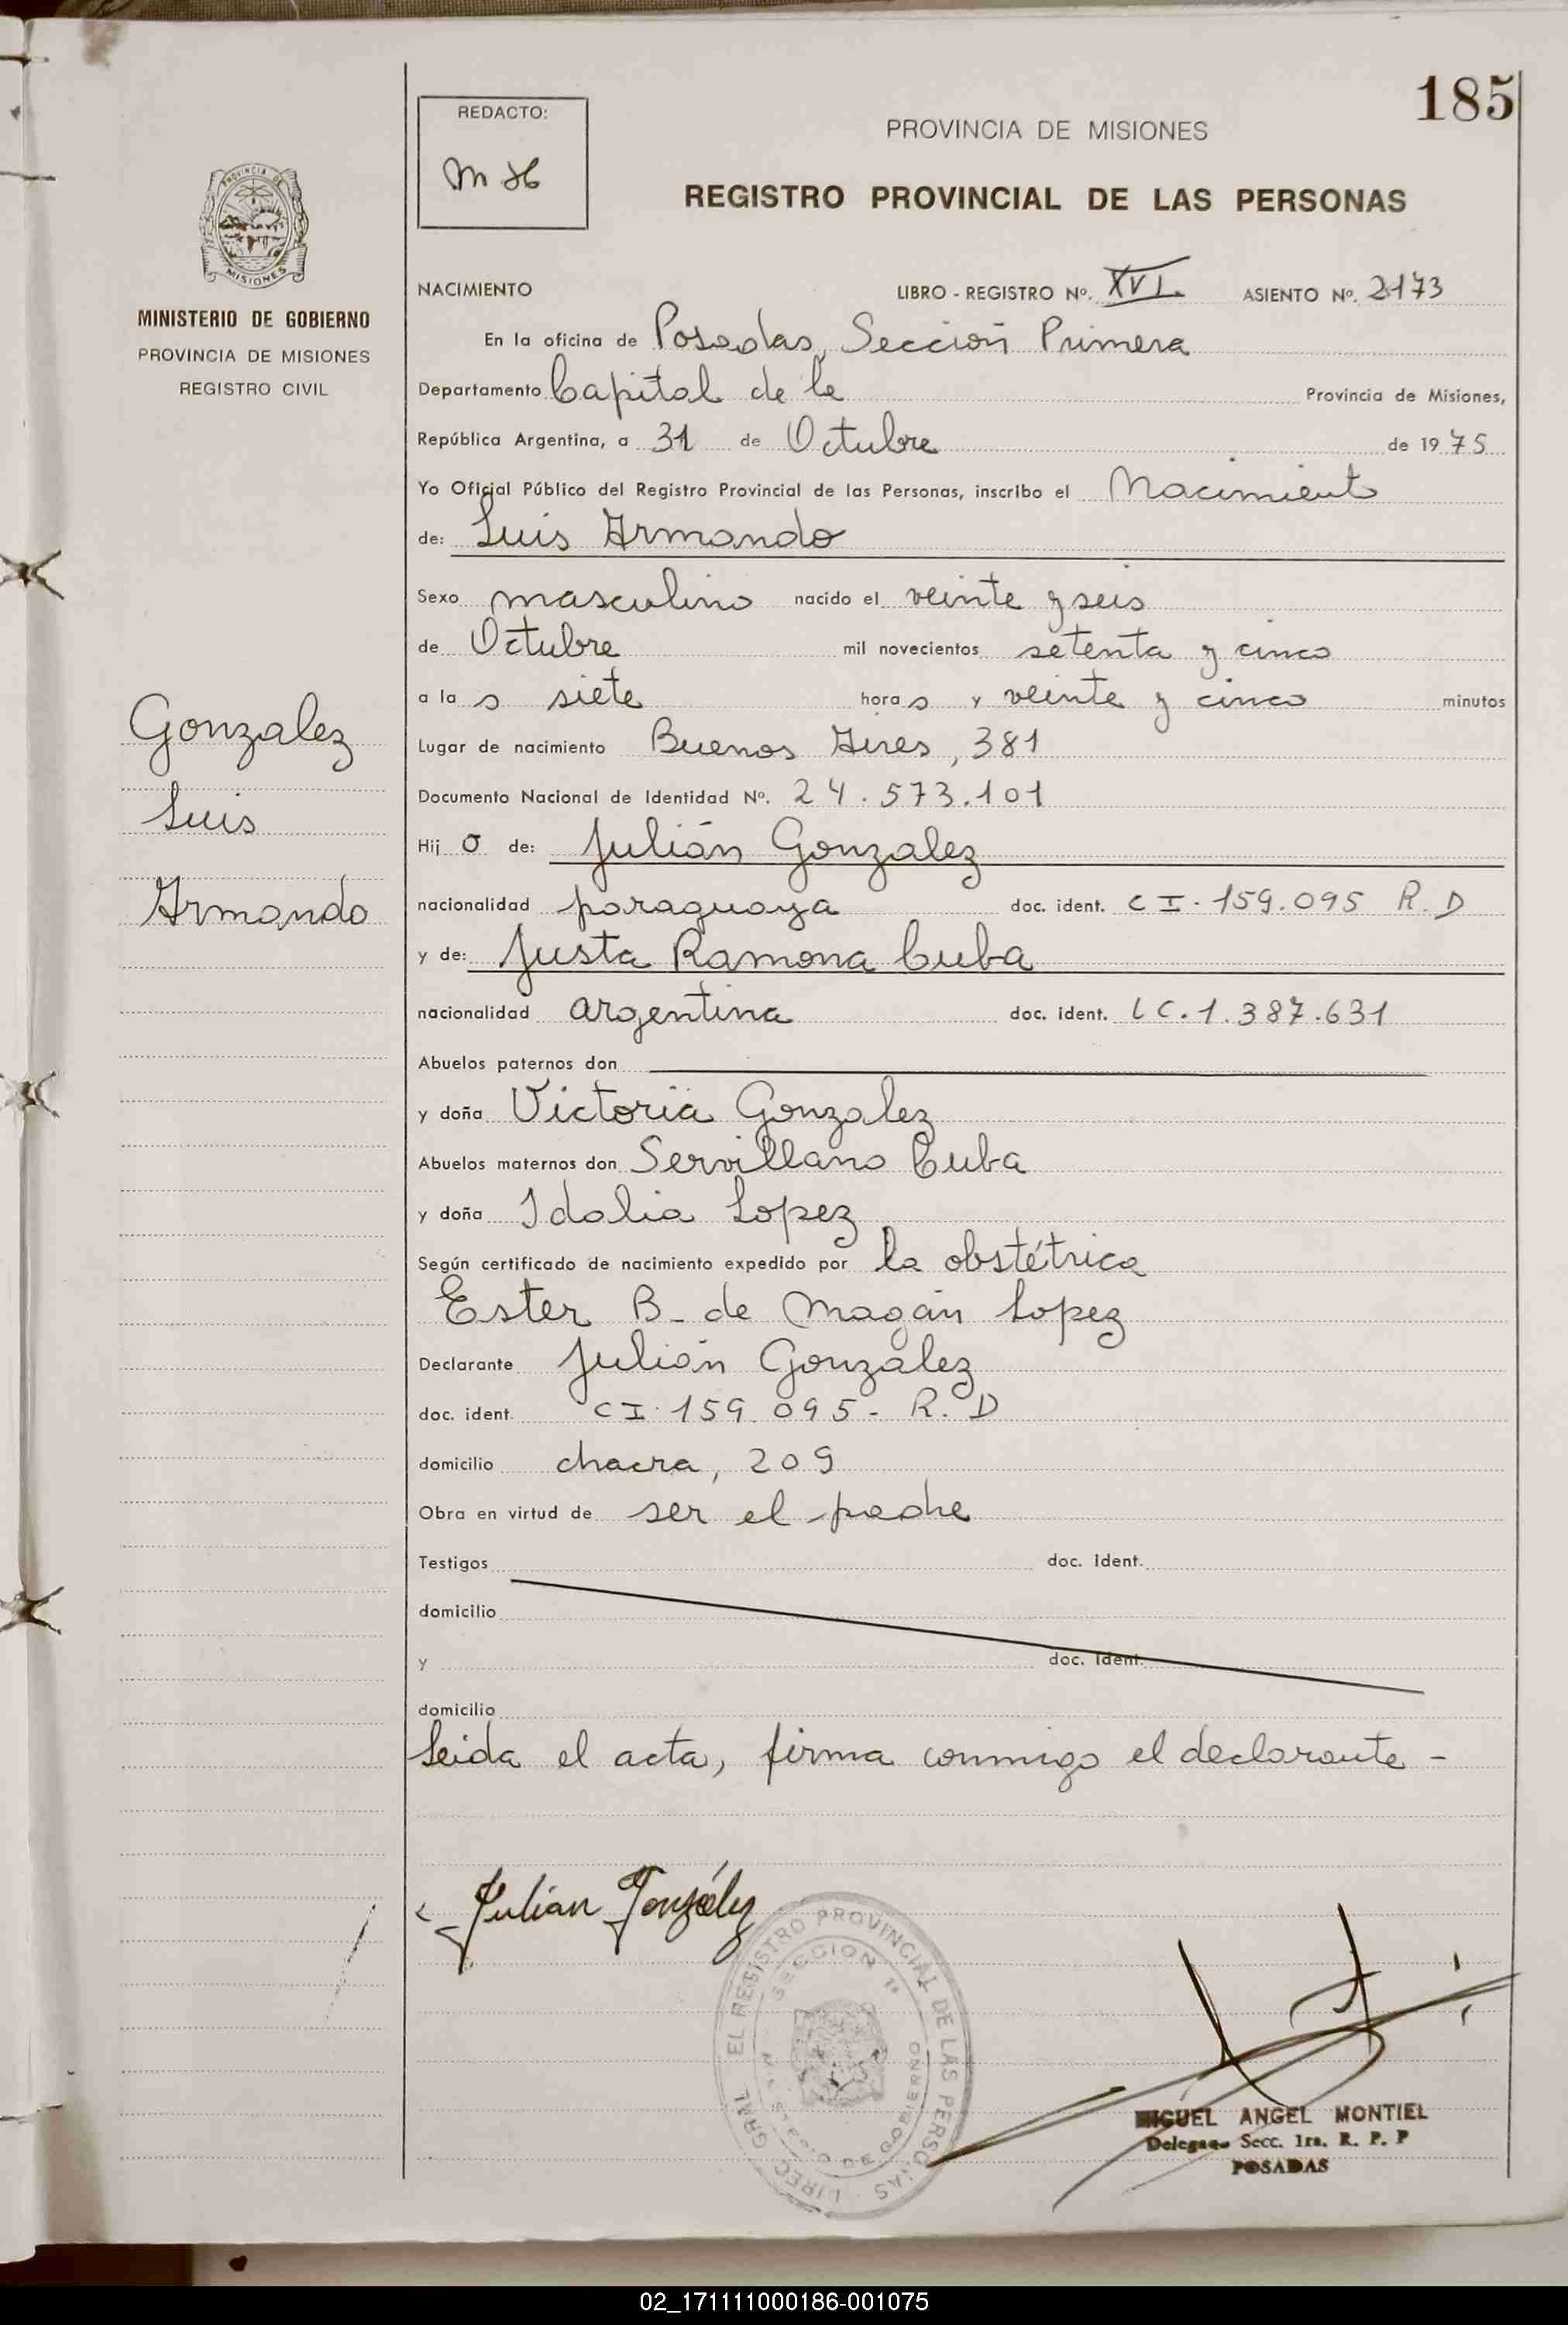 185
REDACTO:
PROVINCIA DE MISIONES
REGISTRO PROVINCIAL DE LAS PERSONAS
PROVINCIA DE
MISIONES
MINISTERIO DE GOBIERNO
PROVINCIA DE MISIONES
REGISTRO CIVIL
Gonzalez
Luis
Armando
NACIMIENTO LIBRO - REGISTRO Nº. XVI ASIENTO Nº. 2173
En la oficina de Posadas, Sección Primera
Departamento Capital de la Provincia de Misiones,
República Argentina, a 31 de Octubre de 1975
Yo Oficial Público del Registro Provincial de las Personas, inscribo el Nacimiento
de: Luis Armando
Sexo masculino nacido el veinte y seis
de Octubre mil novecientos setenta y cinco
a la s siete hora s y veinte y cinco minutos
Lugar de nacimiento Buenos Aires, 381
Documento Nacional de Identidad Nº. 24.573.101
Hij o de: Julián Gonzalez
nacionalidad paraguaya doc. ident. C I. 159.095 R. D
y de: Justa Ramona Cuba
nacionalidad argentina doc. ident. LC. 1.387.631
Abuelos paternos don
y doña Victoria Gonzalez
Abuelos maternos don Servillano Cuba
y doña Idalia Lopez
Según certificado de nacimiento expedido por la obstétrica
Ester B. de Magán Lopez
Declarante Julián González
doc. ident. CI. 159.095- R. D
domicilio chacra, 209
Obra en virtud de ser el padre
Testigos doc. ident.
domicilio
y doc. ident.
domicilio
Leida el acta, firma conmigo el declarante -
Julian González
EL REGISTRO PROVINCIAL DE LAS PERSONAS
SECCION 1ª
MIGUEL ANGEL MONTIEL
Delegado Secc. 1ra. R. P. P
POSADAS
02_171111000186-001075